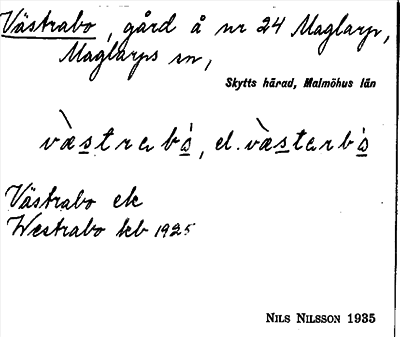 Västrabo, gård å nr 24 Maglarp,
Maglarps sn,
Skytts härad, Malmöhus län
væ̀strabó̱, el. væ̀starbó̱
Västrabo ek
Westrabo kb 1925
NILS NILSSON 1935